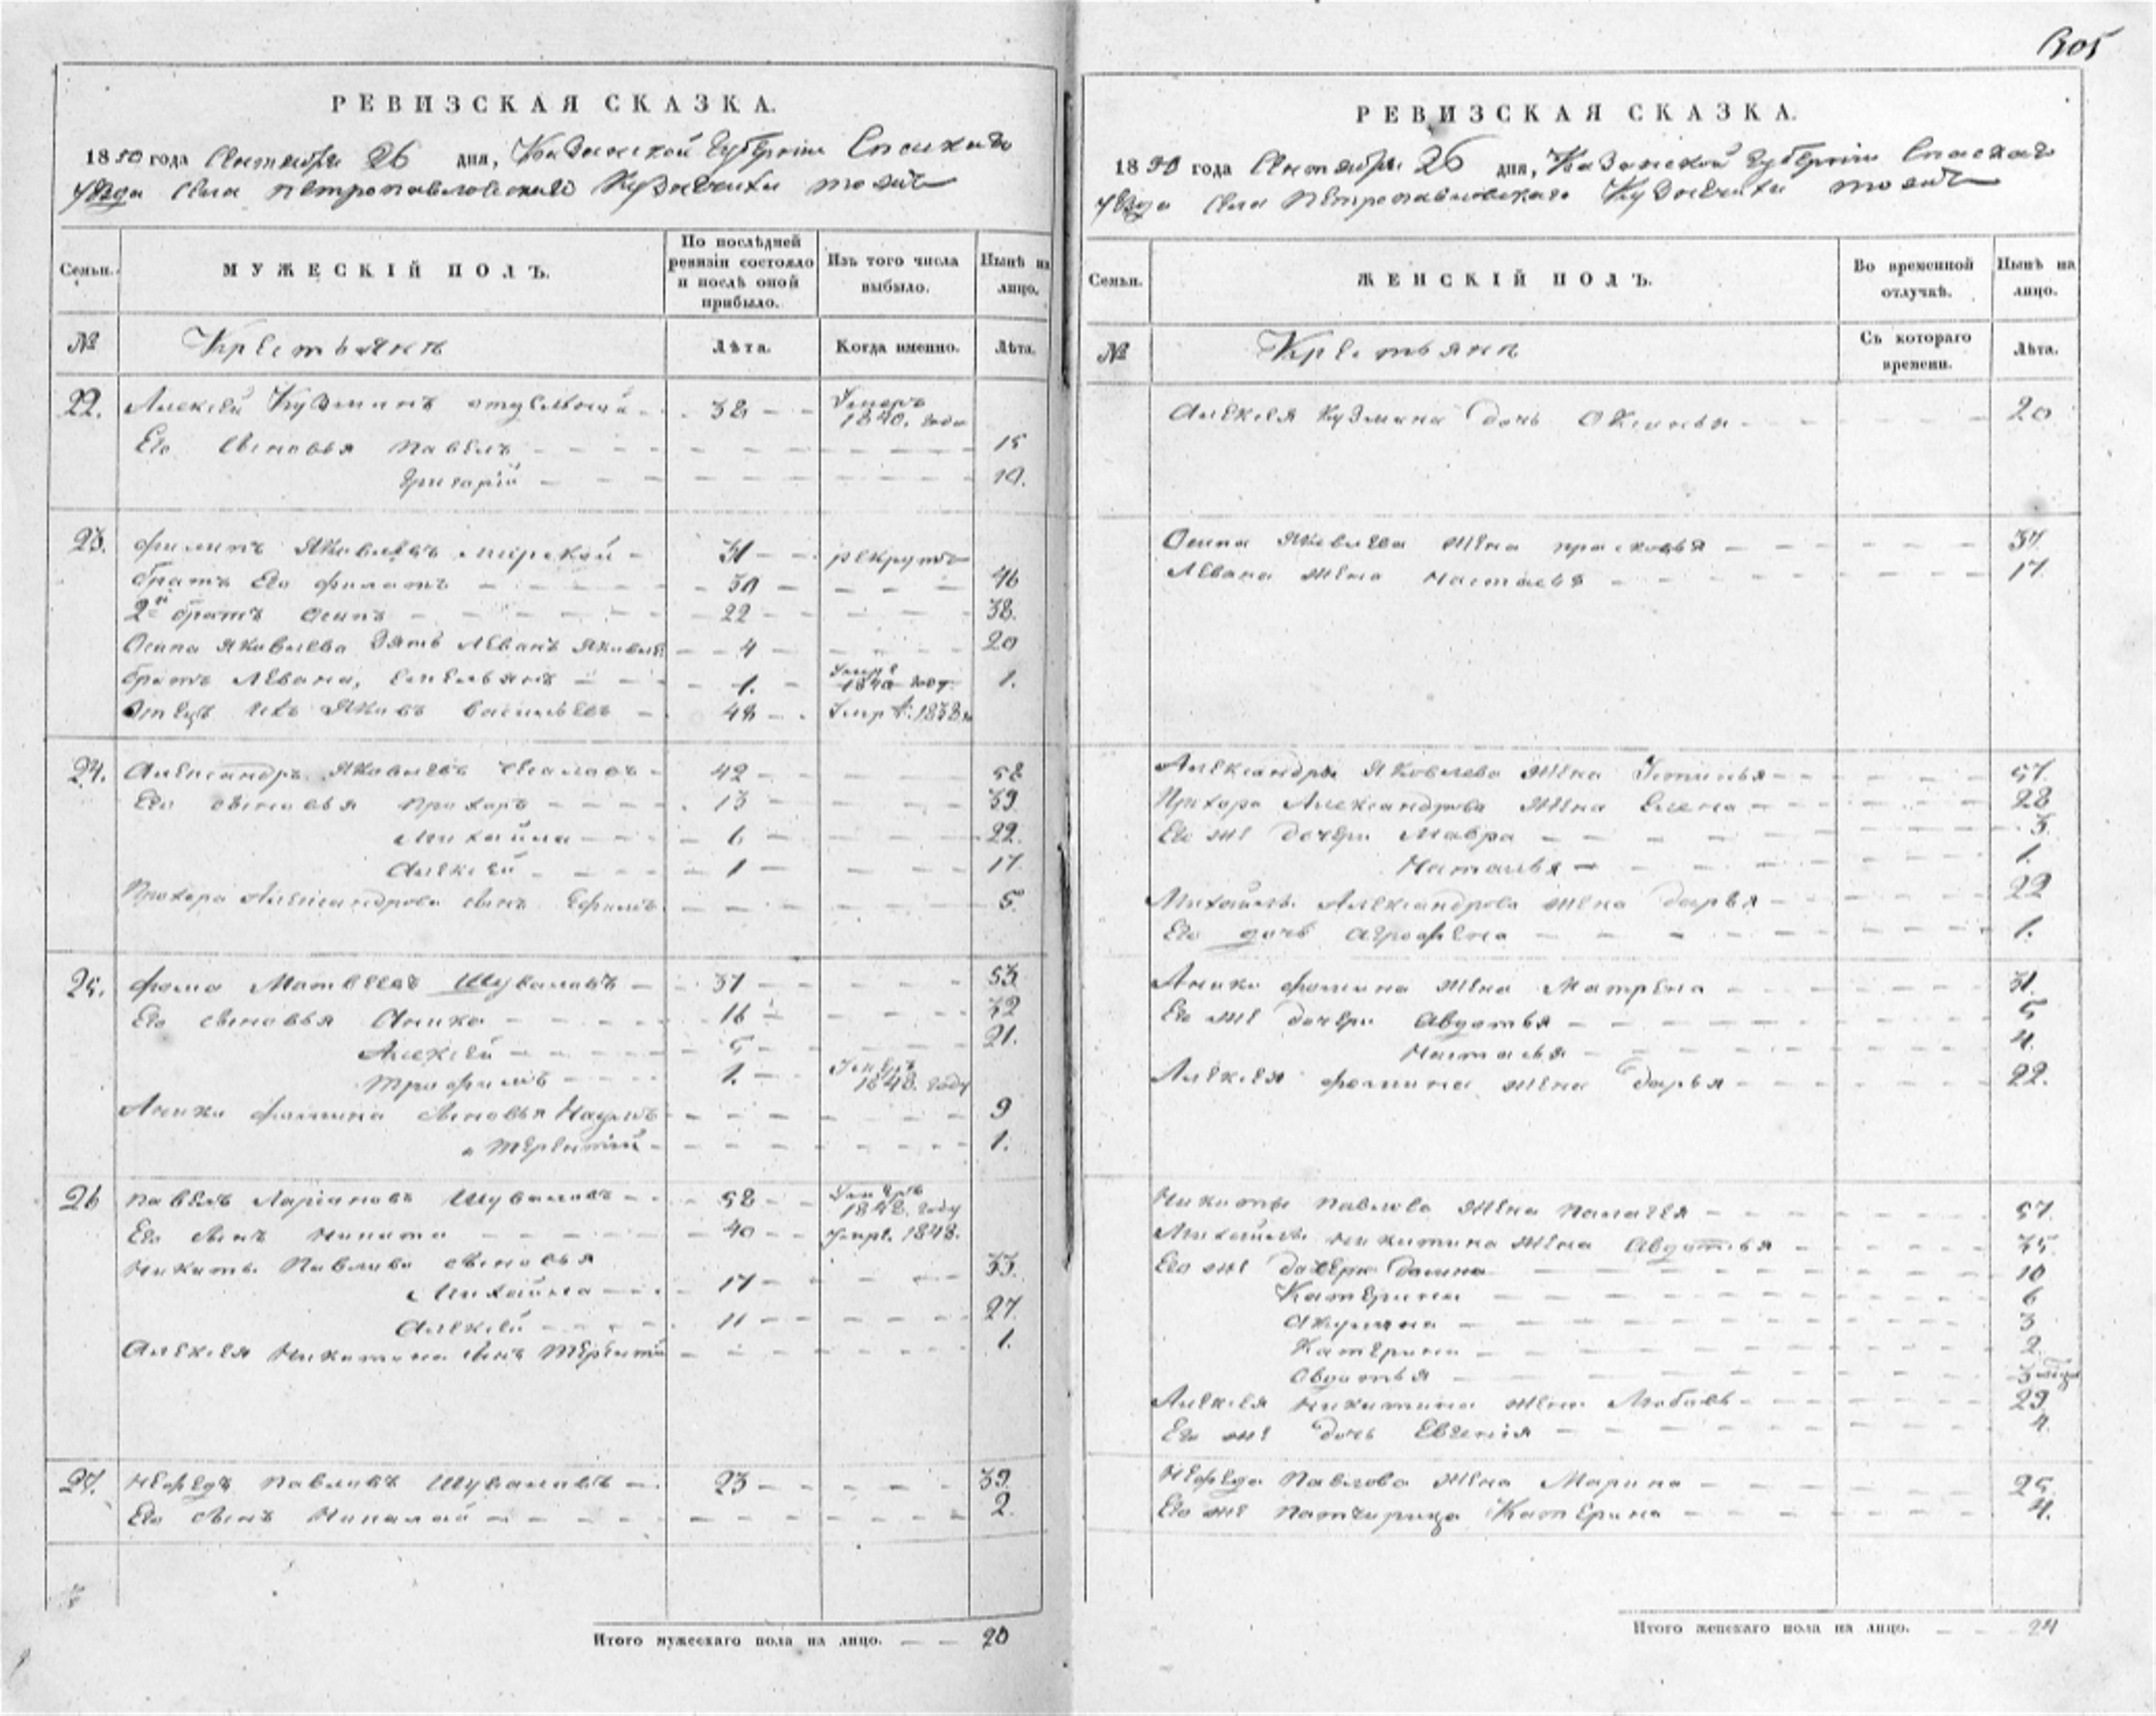 305
РЕВИЗСКАЯ СКАЗКА.
1850 года Сентября 26 дня, Казанской Губернiи Спаскаго
уѣзда Села Петропавловскаго Кузнечиха тожъ
Семьи. МУЖЕСКIЙ ПОЛЪ. По послѣдней ревизiи состояло и послѣ оной прибыло. Изъ того числа выбыло. Нынѣ на лицо.
№ Крестьянъ Лѣта. Когда именно. Лѣта.
22. Алексѣй Кузминъ 38 Умеръ 1840. года
Его Сыновья Павелъ 15
Григорiй 10.
23. Филипъ Яковлевъ 31 рекрутъ
братъ Его Филатъ 30 46
2й братъ Осипъ 22 38.
Осипа Яковлева Зять Леванъ 4 20
братъ Левана, Емельянъ 1. 1.
Отецъ ихъ Яковъ Васильевъ 48 Умръ 1838
24. Александръ Яковлевъ 42 58
Его сыновья Прохоръ 13 39
Михайла 6 22.
Алексѣй 1 17
Прохора Александрова сынъ Ефимъ 5.
25. Фома Матвѣевъ Шуваловъ 37 53
Его сыновья Аника 16 32
Алексѣй 5 21.
Трофимъ 1. Умеръ 1848. году
Аники Фомина Сыновья Наумъ 9
Терентiй 1.
26 Павелъ Ларiановъ Шуваловъ 58 Умеръ 1848. году
Его сынъ Никита 40 Умръ 1848.
Никиты Павлова сыновья
Михайла 17 33.
Алексѣй 11 27.
Алексѣя Никитина сынъ 1.
27. Нефедъ Павловъ Шуваловъ 23 39.
Его сынъ Николай 2.
Итого мужескаго пола на лицо. 20
РЕВИЗСКАЯ СКАЗКА.
1850 года Сентября 26 дня, Казанской Губернiи Спаскаго
уѣзда Села Петропавловскаго Кузнечиха тожъ
Семьи. ЖЕНСКIЙ ПОЛЪ. Во временной отлучкѣ. Нынѣ на лицо.
№ Крестьянъ Съ котораго времени. Лѣта.
Алексѣя Кузмина дочь 20
Осипа Яковлева жена Прасковья 37.
Левана жена Настасья 17
Александра Яковлева жена Устинья 57.
Прохора Александрова жена Елена 28
Его же дочери Мавра 3.
Наталья 1.
Михайлы Александрова жена Дарья 22
Его дочь Аграфена 1.
Аники Фомина жена Матрена 31.
Его же дочери Авдотья 5
Настасья 4.
Алексѣя Фомина жена Дарья 22.
Никиты Павлова жена Палагея 57.
Михайлы Никитина жена Авдотья 35.
Его же дочери Домна 10
Катерина 6
Акулина 3
Катерина 2
Овдотья 3
Алексѣя Никитина жена Любовь 29
Его же дочь Евгенiя 4.
Нефеда Павлова жена Марина 25
Его же Катерина 4.
Итого женскаго пола на лицо. 24